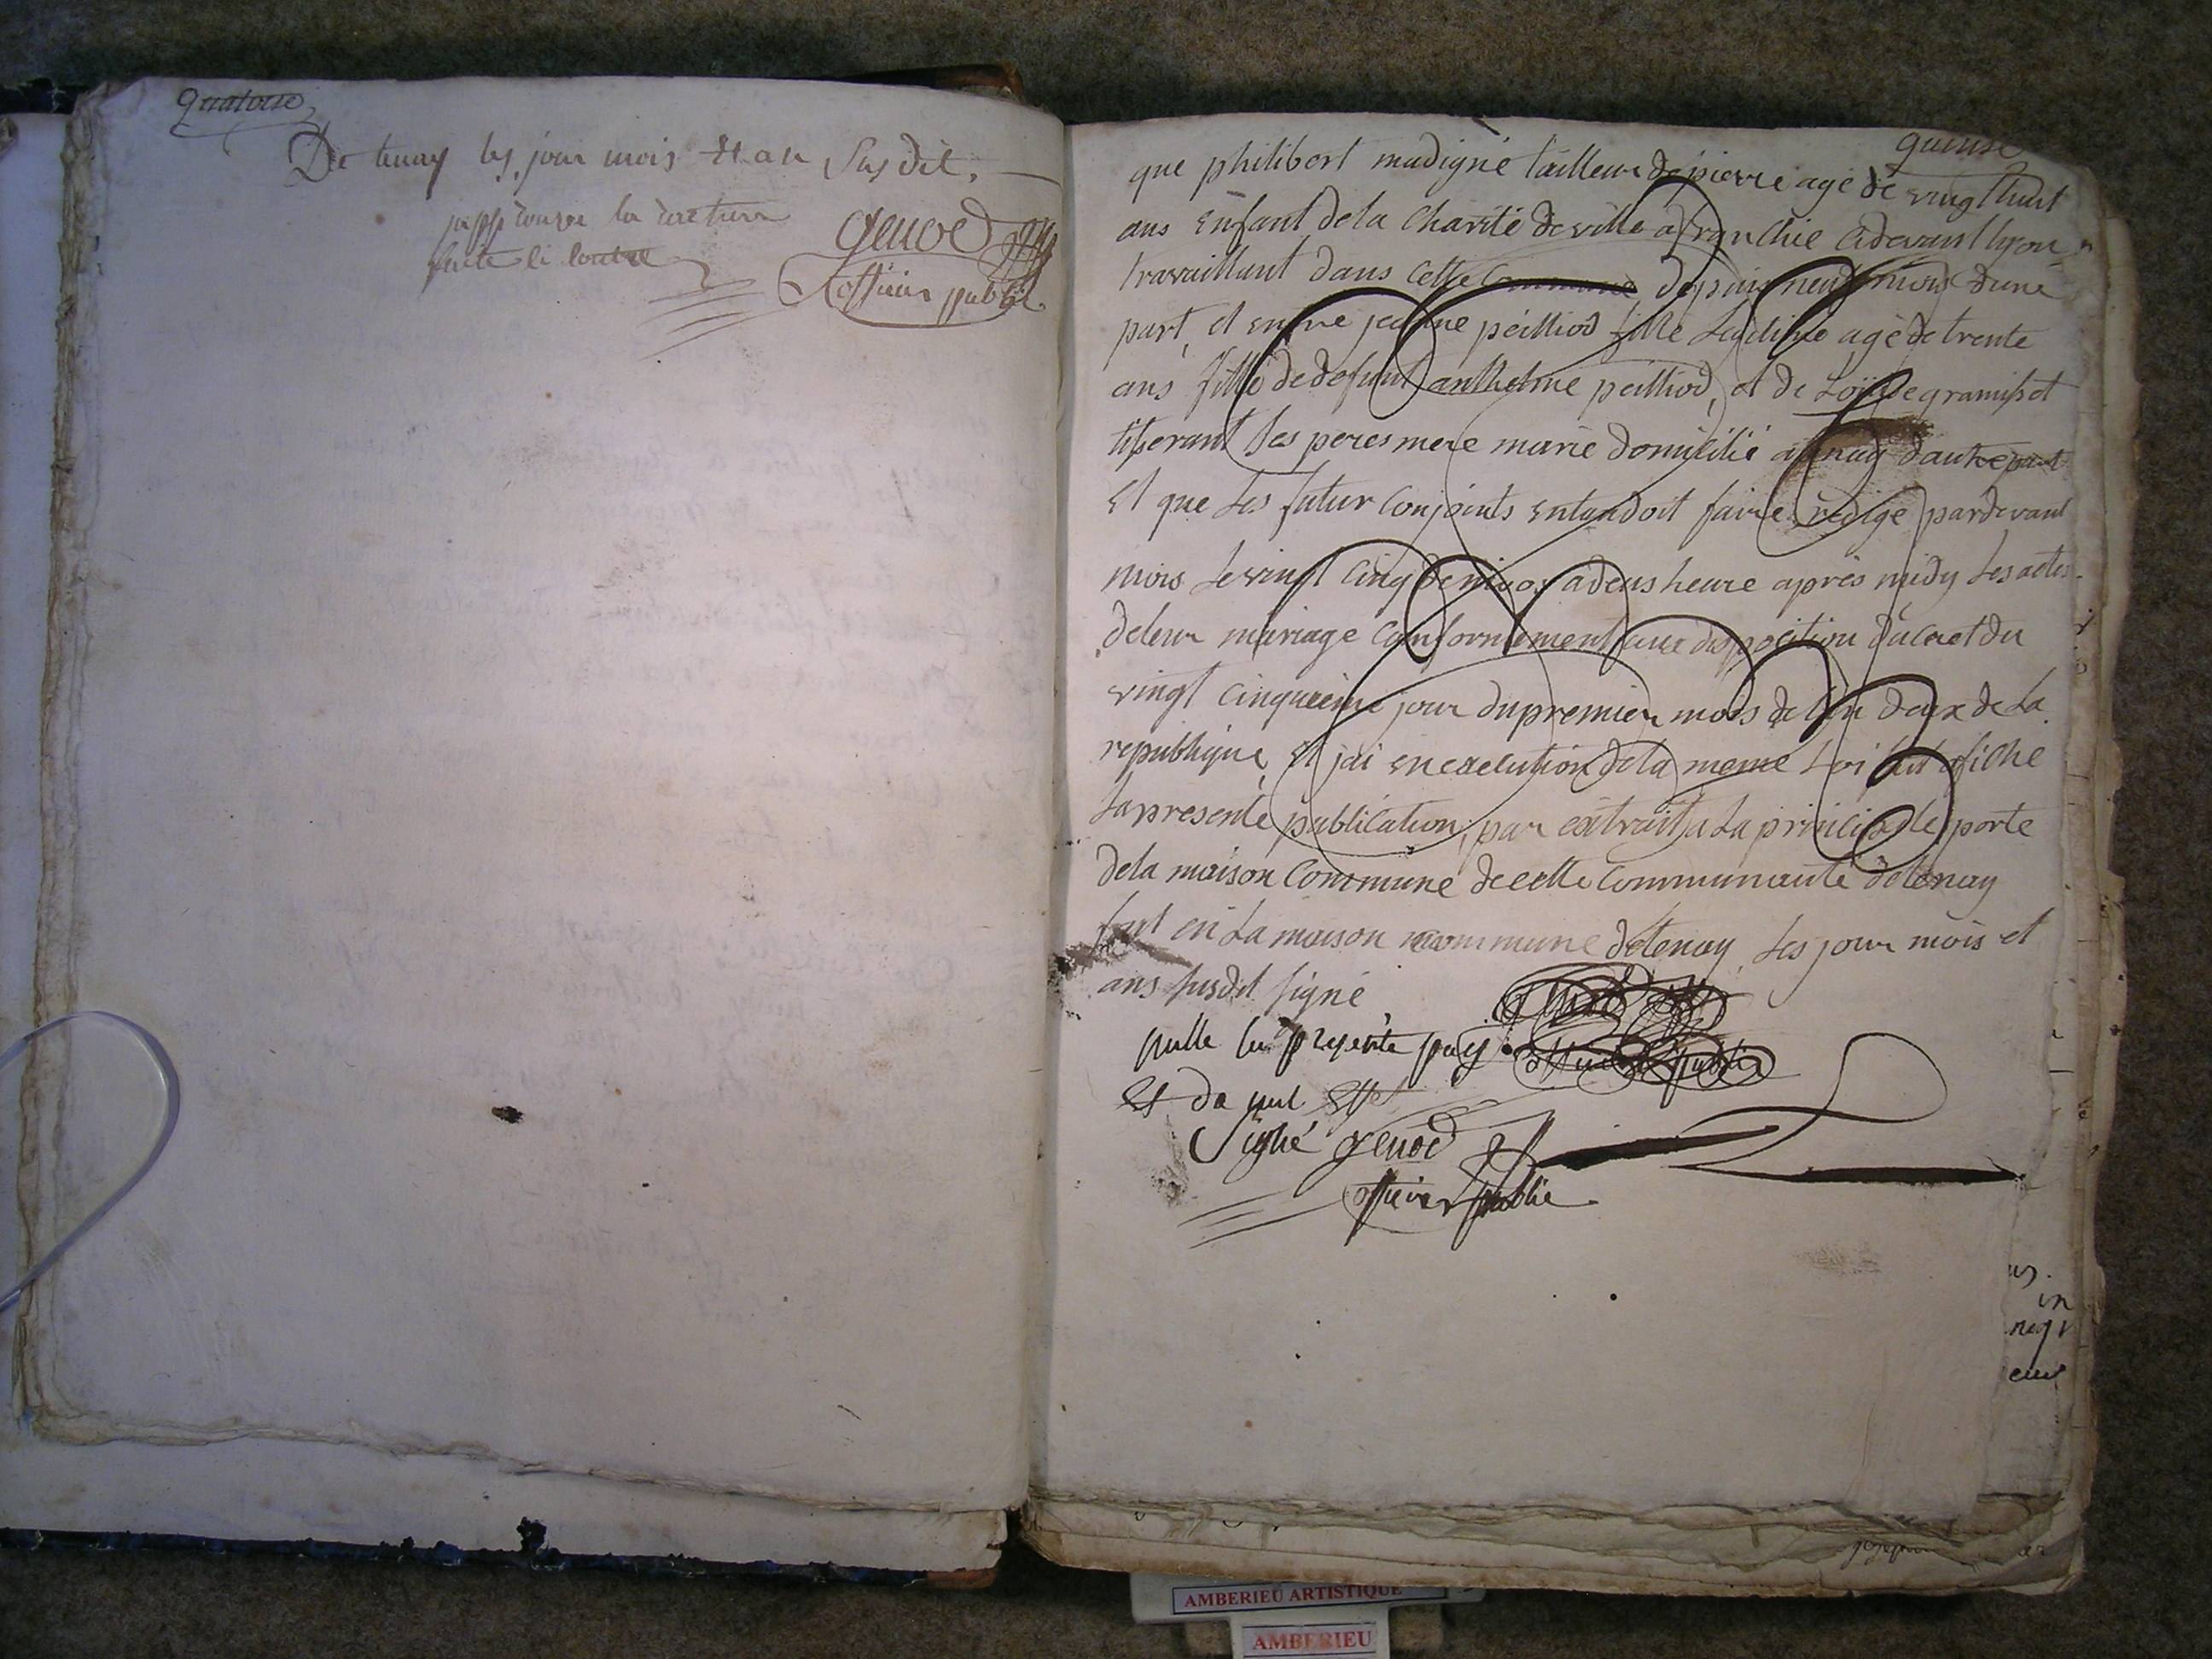 quatorze
De tenay les jour mois Et an Susdit.
japprouve la rature
faite
genod
officier public
quinse
que philibert madigné tailleur de pierre agé de vingt huit
ans enfant de la Charité de ville afranchie cidevant lyon
travaillant dans cette Commune depuis neuf mois dune
part, et entre jeanne peilliod fille Legitime agé de trente
ans fille de defunt anthelme peilliod, et de
tiserant ses peres mere marié domicilié a tenay dautre part
Et que Les futur Conjoints entendoit faire redigé pardevant
mois Le vingt Cinq de nivos a deus heure apres midy Les actes
deleur mariage Conformement aux disposition du
vingt Cinquieme jour du premier mois de lan deux de La
republique, Et jai en execution de la meme Loi afiché
La presente publication, par extrait a La principale porte
dela maison Commune de cette Communauté de tenay
fait en La maison Commune de tenay, Les jour mois et
ans susdit signé
nulle la presente page
Et de nul Effet
Signé genod
officier public
AMBERIEU ARTISTIQUE
AMBERIEU